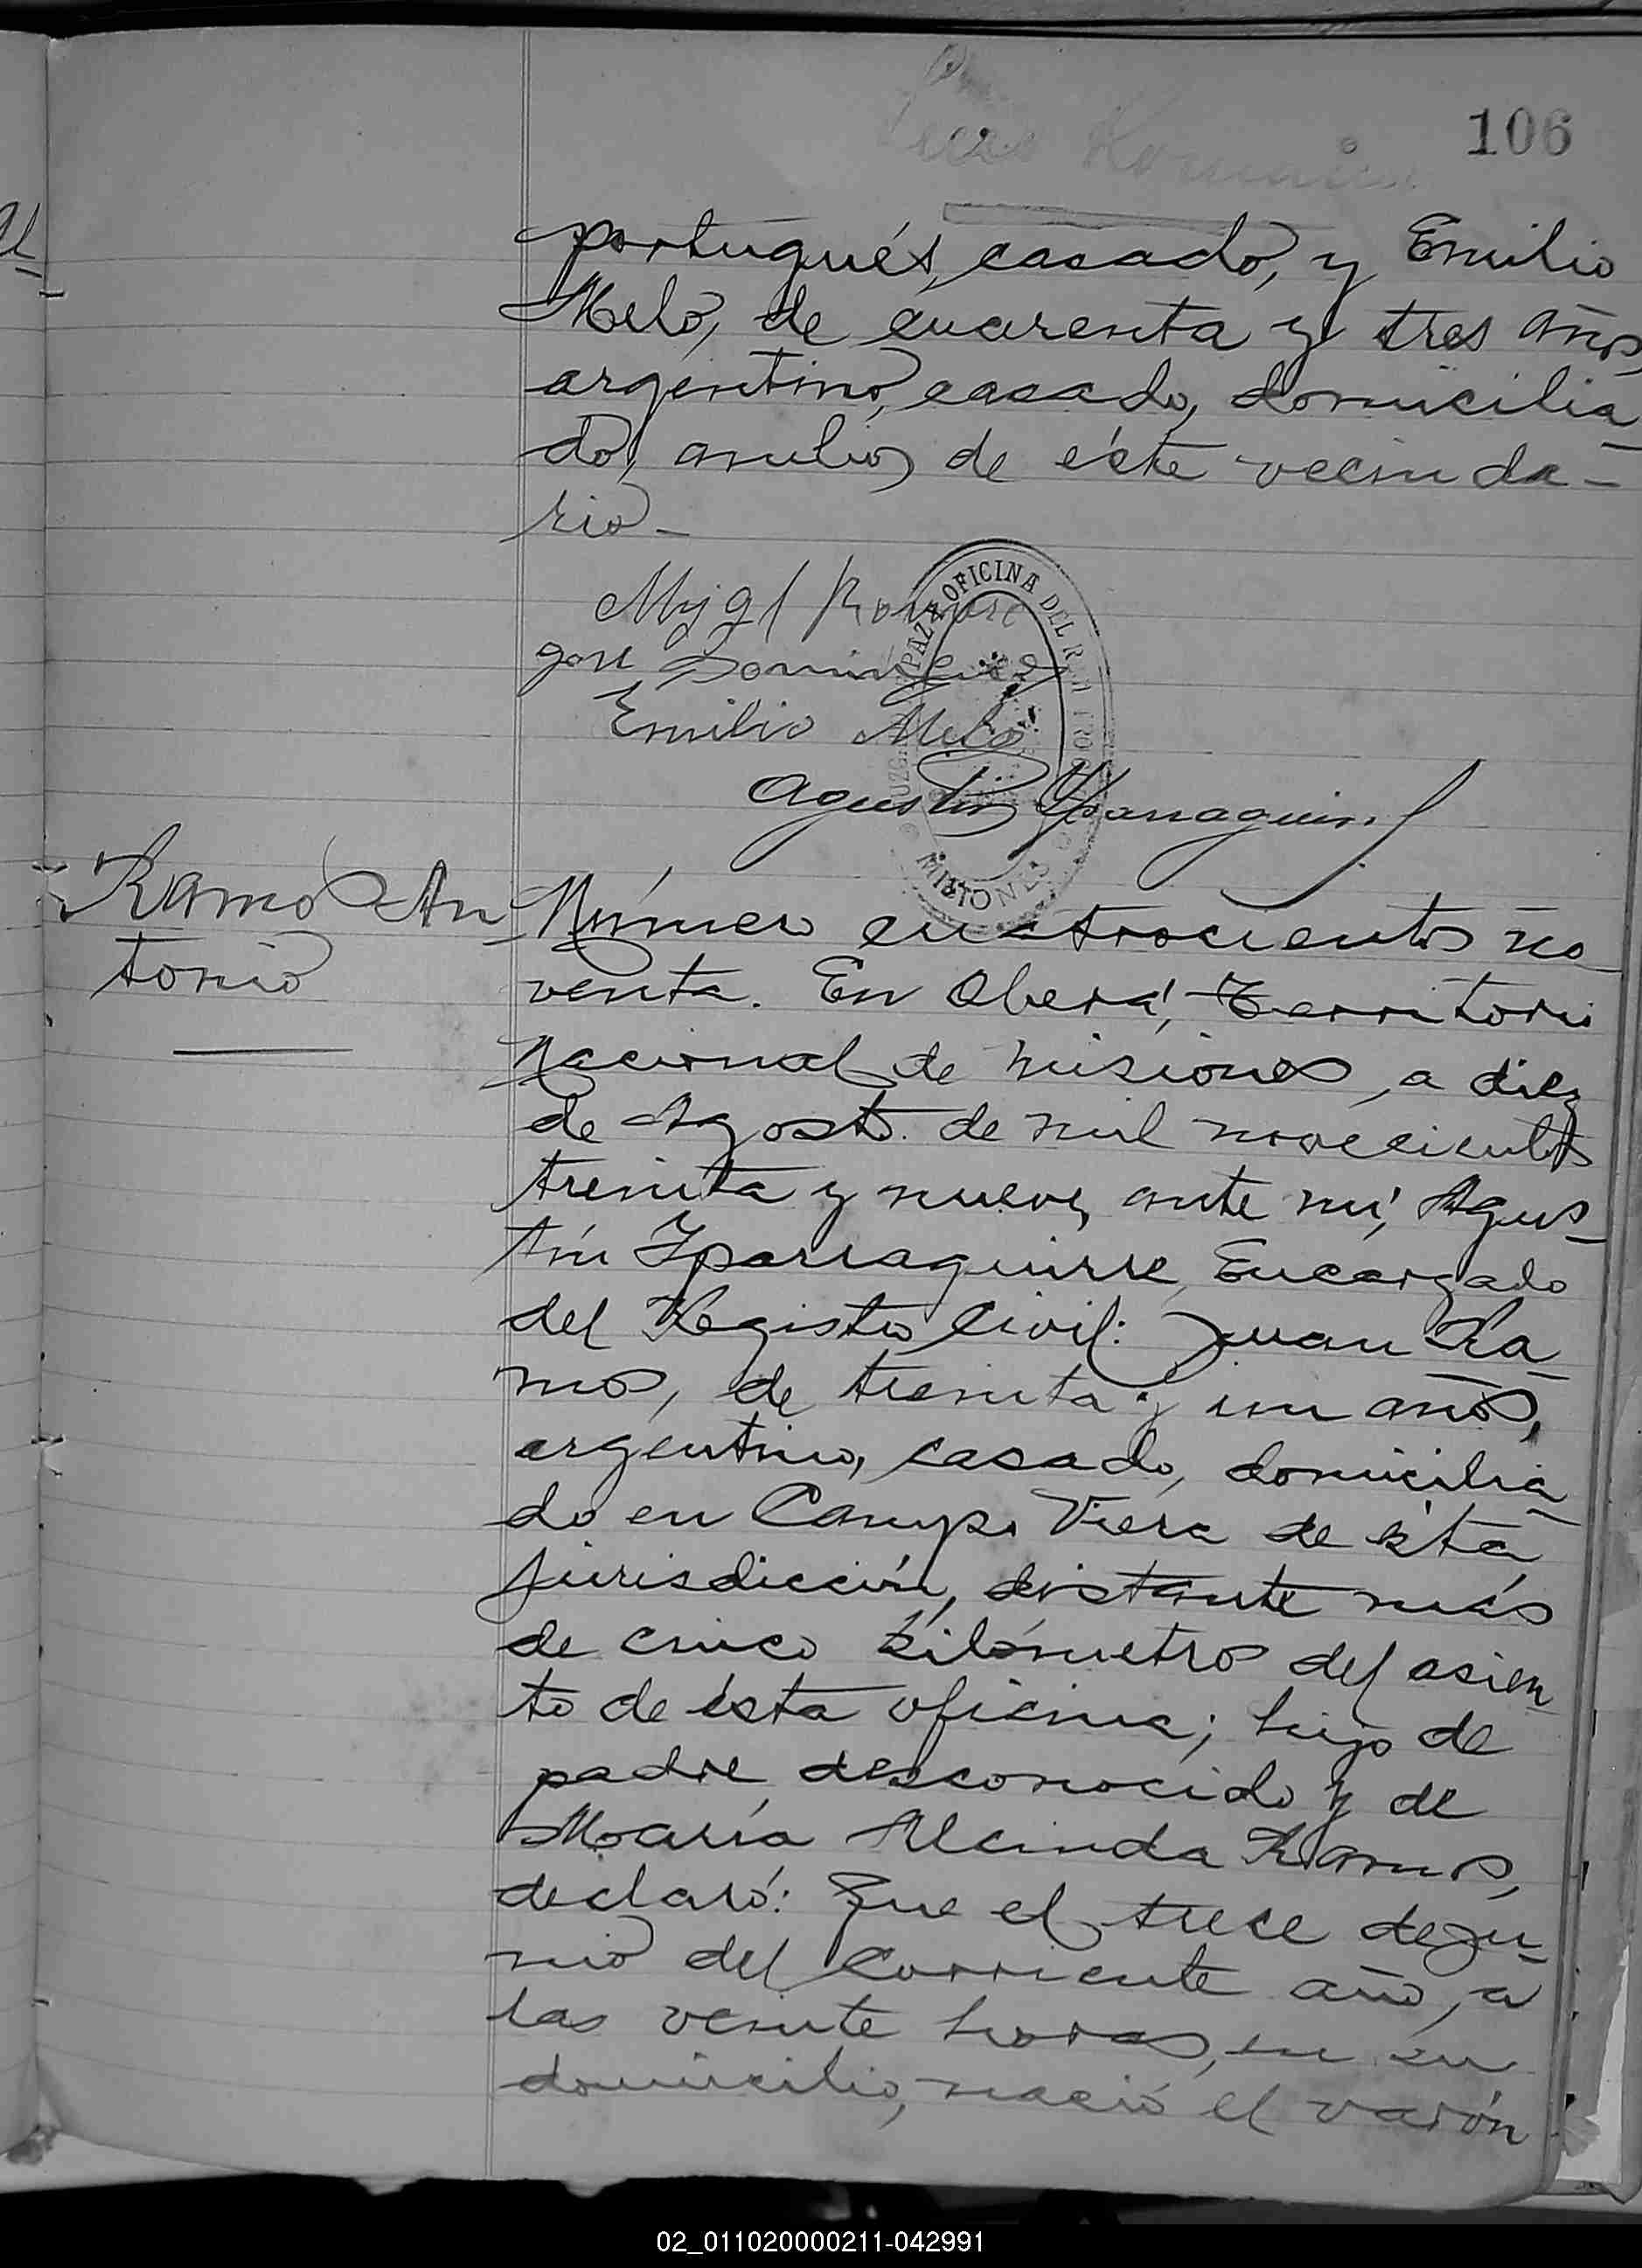 106
portugués, casado, y Emilio
Melo, de cuarenta y tres años,
argentino, casado, domicilia-
do, ambos de éste vecinda-
rio-
José Dominguez
Emilio Melo
Agustin Yparraguirre
OFICINA DEL
PAZ
MISIONES
Ramos An-
tonio
Número cuatrocientos no-
venta. En Oberá, Territorio
Nacional de Misiones, a diez
de Agosto de mil novecientos
treinta y nueve, ante mí, Agus-
tín Yparraguirre, Encargado
del Registro Civil: Juan Ra-
mos, de treinta y un años,
argentino, casado, domicilia-
do en Campo Viera de ésta
jurisdicción, distante más
de cinco kilómetros del asien-
to de ésta oficina; hijo de
padre desconocido y de
María Alcinda Ramos,
declaró: Que el trece de Ju-
nio del corriente año, a
las veinte horas, en su
domicilio, nació el varón
02_011020000211-042991